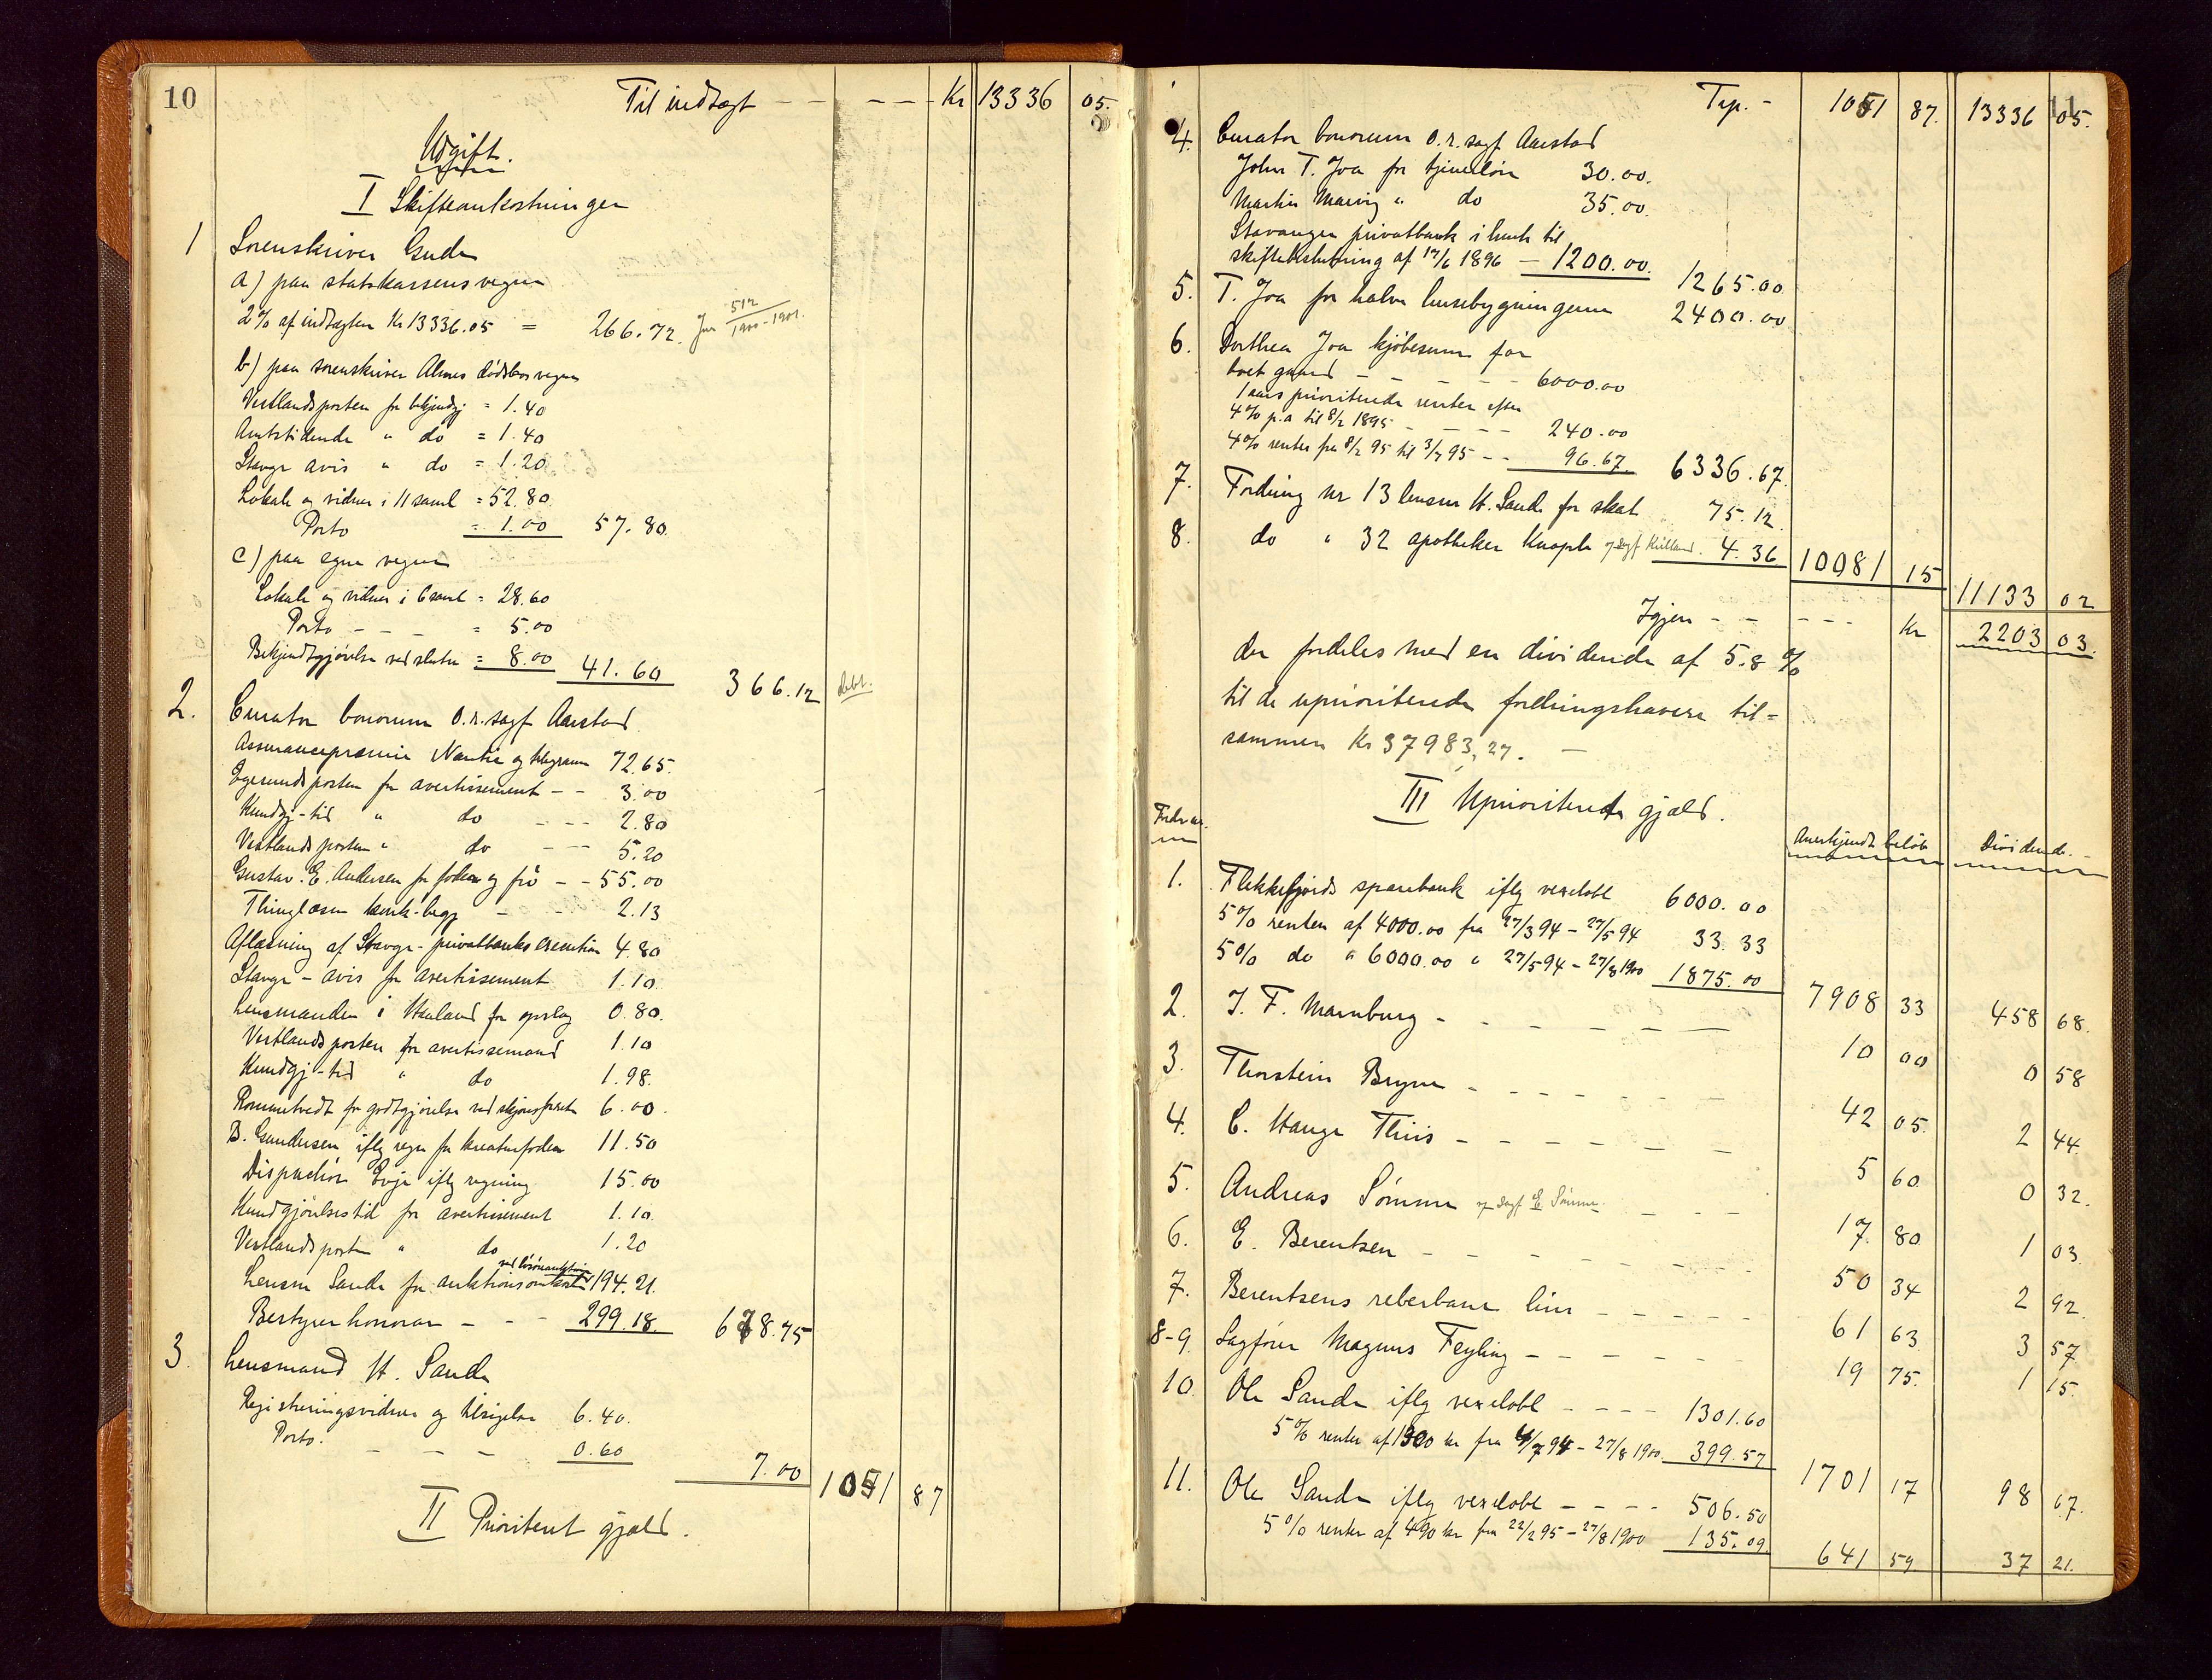 10
Til indtægt - - - - - Kr 13336 05.
Udgift.
I Skifteomkostninger
1 Sorenskriver Gude
a) paa statskassens vegne
2% af indtægten Kr 13336.05 = 266.72. Jnr 512/1900-1901.
b) paa sorenskriver Almes dødsbos vegne
Vestlandsposten for bekjendtgj = 1.40
Amtstidende " do = 1.40
Stavgr avis " do = 1.20
Lokale og vidner i 11 saml = 52.80.
Porto = 1.00 57.80.
c) paa egne vegne
Lokale og vidner i 6 saml = 28.60
Porto - - - = 5.00
Bekjendtgjørelse ved slutn = 8.00 41.60 366.12 debt.
2. Curator bonorum o.r.sagf Aarstad.
Assurancepræmie Nantie og telegram 72.65.
Egersundsposten for avertissement - - 3.00
Kundgj-tid " do - - - 2.80
Vestlandsposten " do - - - 5.20
Gustav. E. Andersen for foder og frö - - 55.00
Thinglæsn konk-begj - - 2.13
Aflæsning af Stavgr- privatbanks execution 4.80
Stavgr - avis for avertissement 1.10.
Lensmanden i Haaland for opslag 0.80.
Vestlandsposten for avertissemand 1.10
Kundgj-tid " do 1.98.
Rommetvedt for godtgjörelse ved skjönsforretn 6.00.
B. Gundersen iflg regn for kreaturfoder 11.50
Dispachör Eyje iflg regning 15.00
Kundgjörelsestid for avertissement 1.10.
Vestlandspost " do 1.20
ved lösöreauktion
Lensm Sande for auktionsomkostn 194.21.
Bestyrer honorar - - - 299.18. 678.75
3. Lensmand H. Sande
Registreringsvidner og tilsigelse 6.40.
Porto. - - - 0.60 7.00 1051 87
II Prioritert gjæld.
11
Trp. - 1051 87. 13336 05.
4. Curator bonorum o.r.sagf Aarstad
John T. Joa for tjenerlön 30.00.
Martin Mæring " do 35.00.
Stavanger privatbank i henh til
skiftebeslutning af 17/6 1896 - 1200.00. 1265.00
5. T. Joa for halve husebygningerne 2400.00
6. Dorthea Joa kjöbesum for
boet gaard - - - - - 6000.00
1 aars prioriterede renter efter
4% p.a til 8/2 1895 - - - - 240.00
4% renter fra 8/2 95 til 3/7 95 - - 96.67. 6336.67.
7. Fordring nr 13 lensm H. Sande for skat 75.12.
8. do " 32 apotheker Knoph v/ sagf Kielland. 4.36 10081 15
11133 02
Igjen - - - - - Kr 2203 03.
der fordeles med en dividende af 5.8 %
til de uprioriterede fordringshavere til=
sammen Kr 37983,27. -
III Uprioriterede gjæld.
Fordr nr. Anerkjendt belöb Dividende.
1. Flekkefjords sparebank iflg vexelobl 6000.00
5% renter af 4000.00 fra 27/3 94 - 27/5 94 33.33
5% do " 6000.00 " 27/5 94 - 27/8 1900 1875.00 7908 33 458 68.
2. J. F. Marnburg - - - - - 10 00 0 58
3. Thorstein Bryne - - - - - 42 05. 2 44.
4. C. Hauge Thiis - - - - - 5 60 0 32.
5. Andreas Sömme v/ sagf E Sömme. - - - 17. 80 1 03.
6. E. Berentsen - - - - - 50 34 2 92.
7. Berentsens reberbane linr - - - - 61 63 3 57
8-9. Sagförer Magnus Feyling - - - - - 19 75. 1 15.
10. Ole Sande iflg vexelobl - - - - 1301.60
5% renter af 1300 kr fra 4/7 94 - 27/8 1900. 399.57 1701 17 98 67.
11. Ole Sande iflg vexelobl - - - - 506.50
5% renter af 490 kr fra 22/2 95 - 27/8 1900 135.09. 641 59. 37 21.